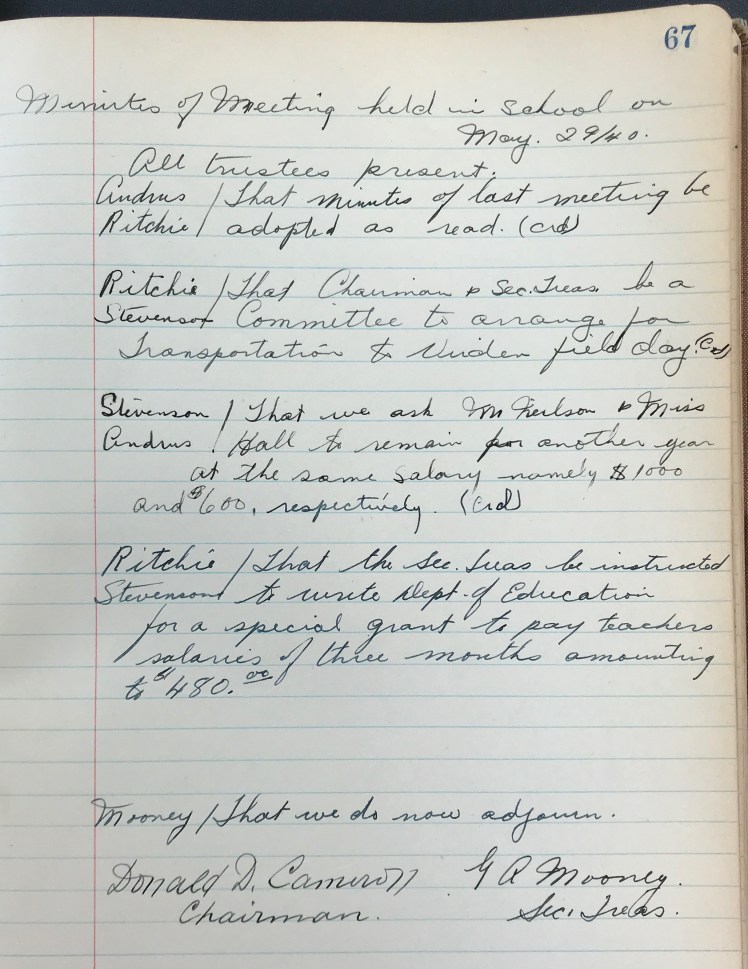 67
Minutes of Meeting held in school on
May. 29/40.
All trustees present.
Andrus / That minutes of last meeting be
Ritchie / adopted as read. (crd)
Ritchie / That Chairman & Sec. Treas. be a
Stevenson Committee to arrange for
Transportation to Virden field day. (Crd)
Stevenson / That we ask Mr Neilson & Miss
Andrus / Hall to remain for another year
at the same salary namely $1000
and $600, respectively. (crd)
Ritchie / That the Sec. Treas be instructed
Stevenson to write Dept. of Education
for a special grant to pay teachers
salaries of three months amounting
to $480.00
Mooney / That we do now adjourn.
Donald D. Cameron G R Mooney.
Chairman. Sec. Treas.